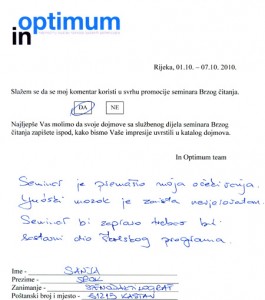 optimum
in
Rijeka, 01.10. – 07.10. 2010.
Slažem se da se moj komentar koristi u svrhu promocije seminara Brzog
čitanja.
DA NE
Najljepše Vas molimo da svoje dojmove sa službenog dijela seminara Brzog
čitanja zapišete ispod, kako bismo Vaše impresije uvrstili u katalog dojmova.
In Optimum team
Seminar je premašio moja očekivanja.
Ljudski mozak je zaista nevjerojatan.
Seminar bi zapravo trebao biti
sastavni dio školskog programa.
Ime - SANJA
Prezime -
Zanimanje -
Poštanski broj i mjesto - 51215 KASTAV